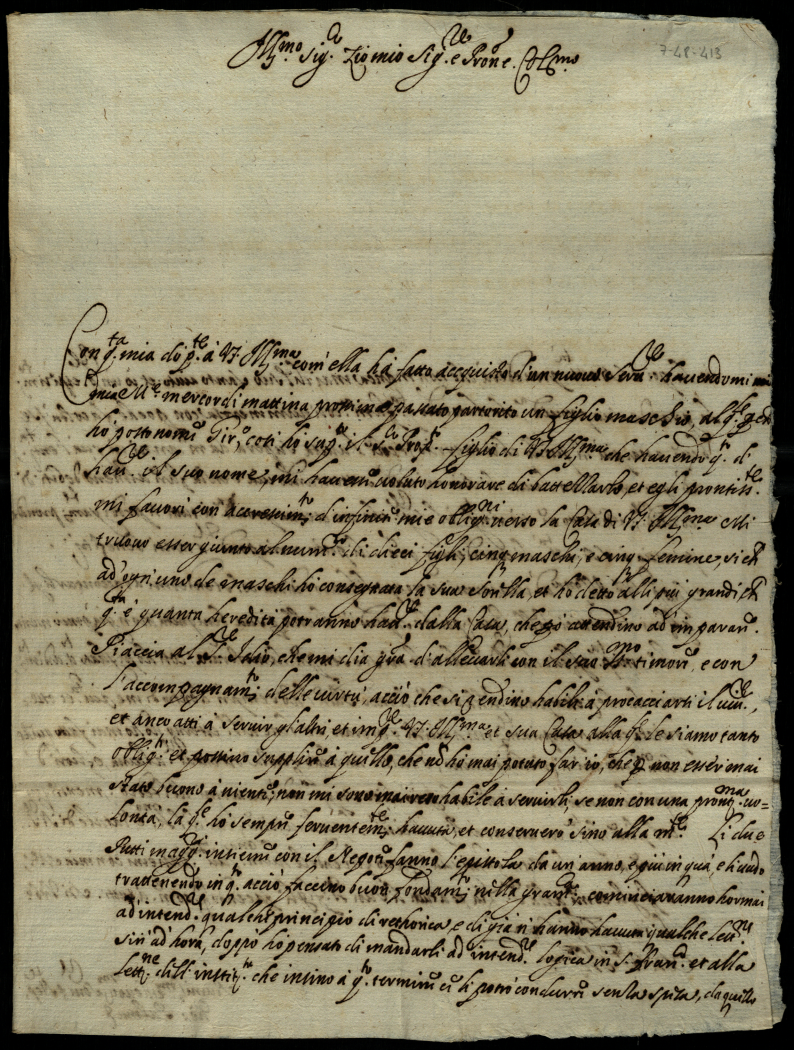 Ill.mo Sig.r Zio mio Sig.re e Pron.e Col.mo
7-48-413
Con q.ta mia dò p.te à V.S. Ill.ma com'ella hà fatto acquisto d'un nuovo Serv.re havendomi mia
mercordi mattina prossimo passato partorito un figlio maschio, al q.
hò posto nome così hò figlio di V.S. Ill.ma che havendo q. d
il suo nome, mi havesse voluto honorare di battezzarlo, et egli prontiss.te
mi favorì con accrescim.to d'infinite mie oblig.ni verso la Casa di V.S. Ill.ma Mi
trovo esser giunto al num.o di dieci figli, cinq. maschi, e cinq. femine, si ch
ad ogn'uno de maschi hò consegnata la sua sorella, et hò detto alli più grandi, ch
q.ta è quanta heredità potranno hav.re dalla Casa, che attendino ad imparare.
Piaccia al Sig.re Iddio, che mi dia gra. d'allevarli con il suo S.mo timore, e con
l'accompagnam.to delle virtù, acciò che si rendino habili à procacciarsi il
et anco atti à servir gl'altri, et V.S. Ill.ma et sua Casa alla q.le siamo tanto
oblig.ti et possino supplire à quello, che nō hò mai potuto far io, che p non esser mai
stato buono à niente, non mi sono mai reso habile à servirli, se non con una pront.ma vo=
lontà, la q.le hò sempre ferventem.te havuta, et conserverò sino alla m.te Li due
Putti magg.ri fanno l'epistola da un'anno, e più in quà, e li vado
trattenendo in q.to acciò faccino buon fondam.to nella gram.ca cominciaranno hormai
ad intend.re qualche principio di rethorica, e di già n'hanno havuta qualche lett.ne
sin'ad hora, doppo hò pensato di mandarli ad intend.re logica in S. Fran.co et alla
lett.ne dell'instit.ta che insino à q.to termine ci li potrò condurre senza spesa, da quello